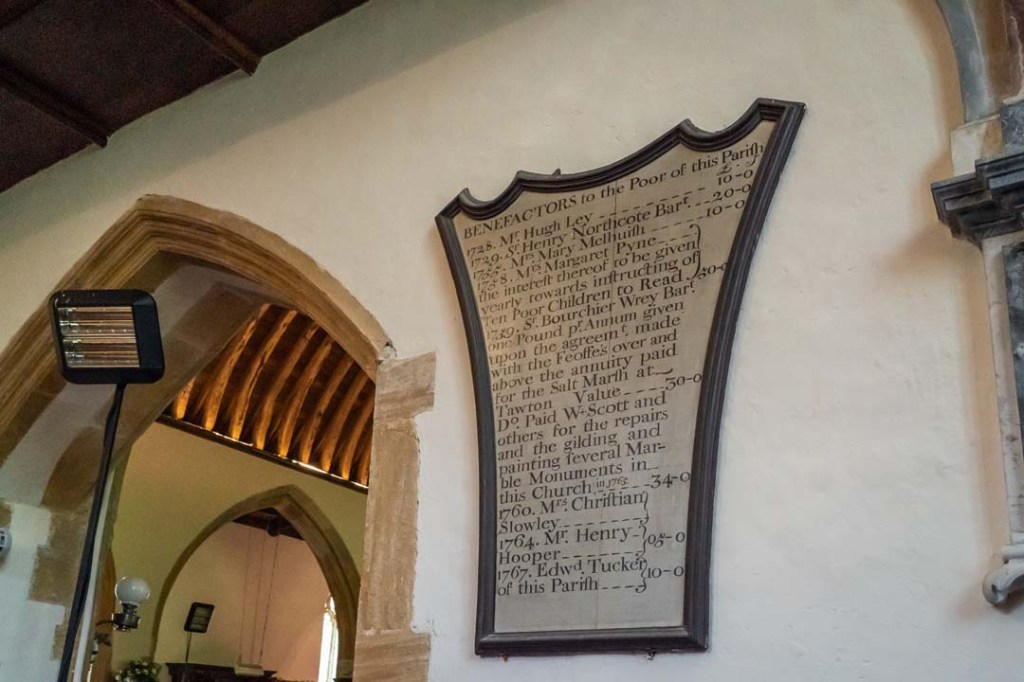 BENEFACTORS to the Poor of this Pariſh
£
1728. Mr. Hugh Ley - - - - - - - 10-0
1729. Sr. Henry Northcote Bart. - - - 20-0
1755. Mrs. Mary Melhuiſh - - - - 10-0
1758. Mrs. Margaret Pyne - - -
the intereſt thereof to be given
yearly towards inſtructing of
Ten Poor Children to Read 50-0
1759. Sr. Bourchier Wrey Bart.
one Pound pr. Annum given
upon the agreemt. made
with the Feoffes over and
above the annuity paid
for the Salt Marſh at
Tawton Value - - - - 30-0
Do. Paid W. Scott and
others for the repairs
and the gilding and
painting ſeveral Mar-
ble Monuments in
this Church in 1763 - - 34-0
1760. Mrs. Chriſtian
Slowley - - - - - - -
1764. Mr. Henry
Hooper - - - - - - 05-0
1767. Edwd. Tucker
of this Pariſh - - - - 10-0